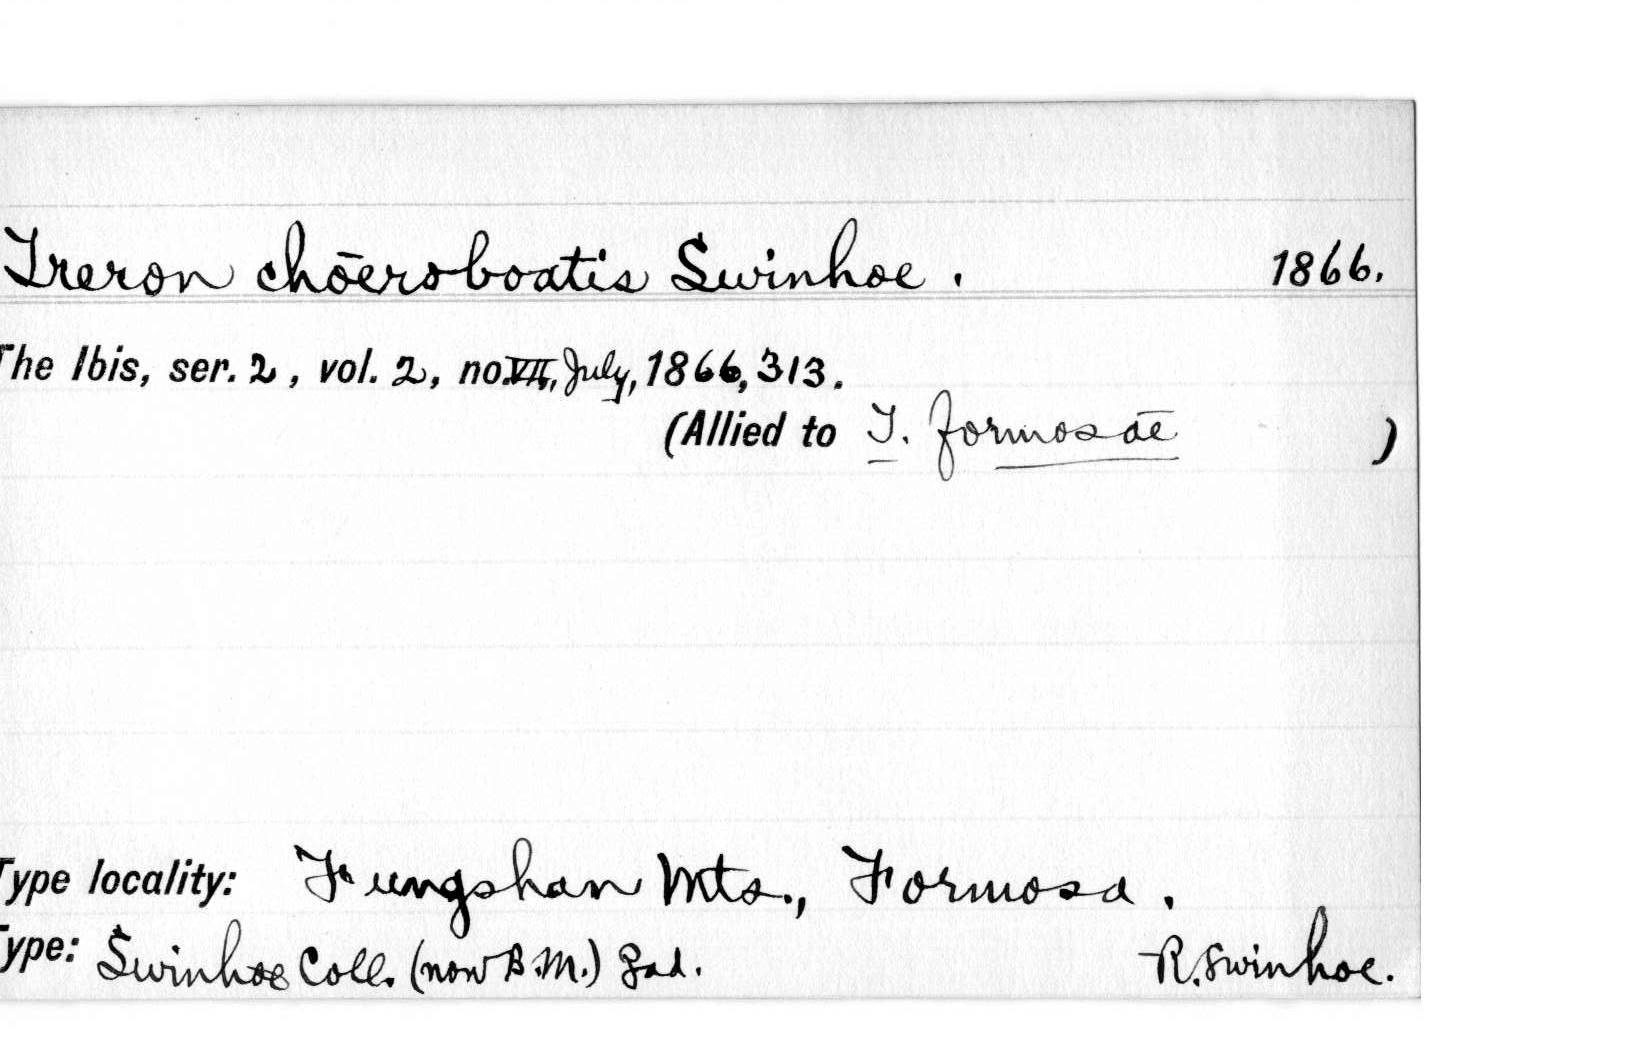 Treron chōeroboatis Swinhoe. 1866.
The Ibis, ser. 2, vol. 2, no. VII, July, 1866, 313.
(Allied to T. formosāe )
Type locality: Fungshan Mts., Formosa.
Type: Swinhoe Coll. (now B.M.) ad. R. Swinhoe.